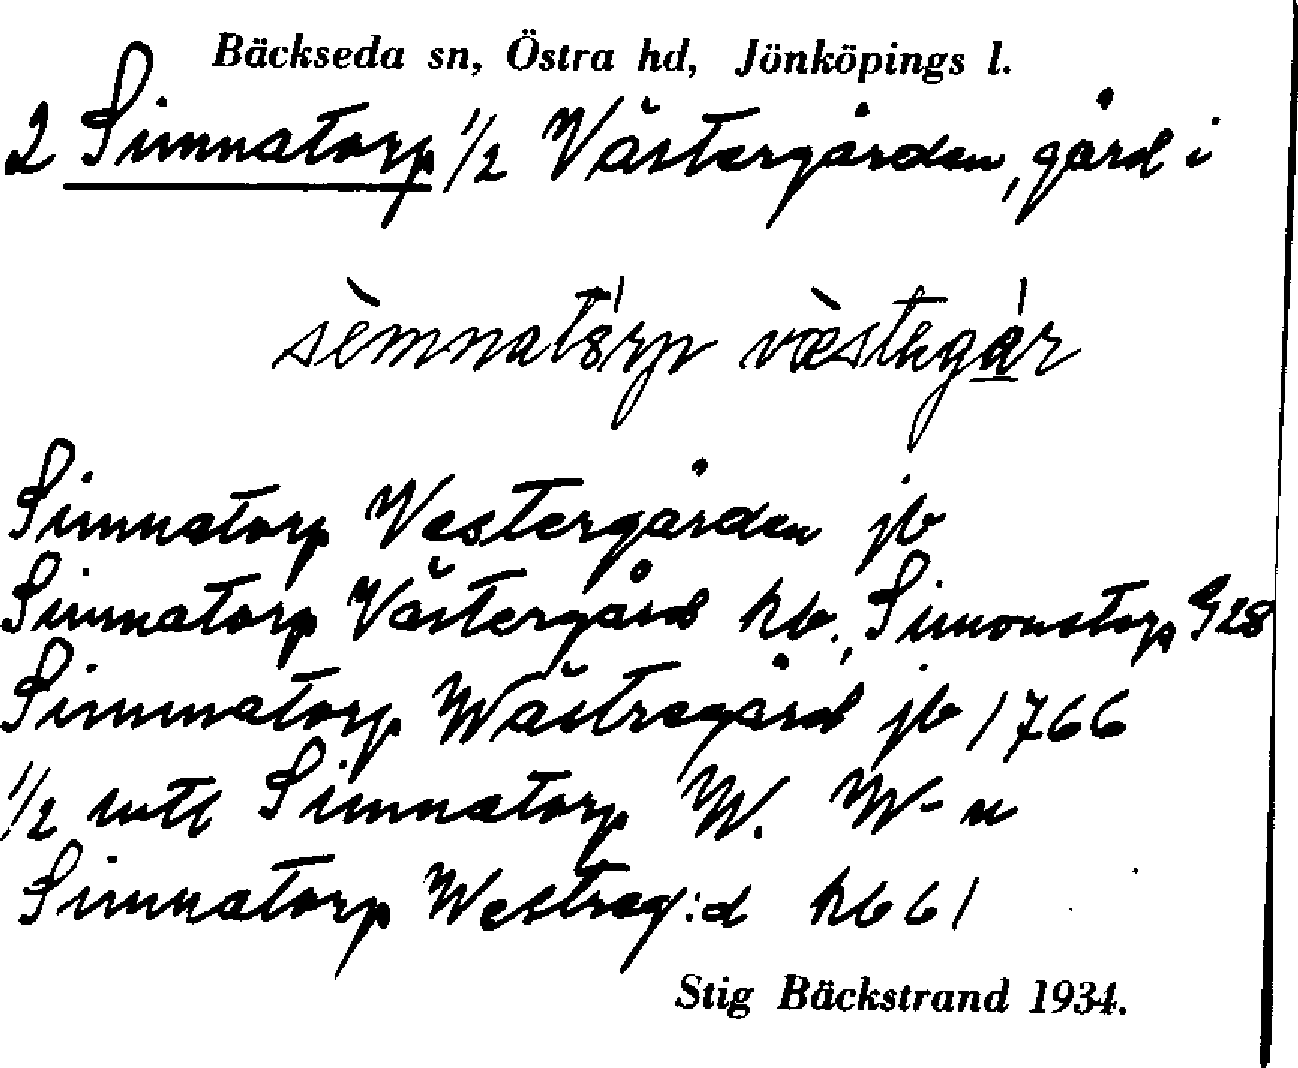 Bäckseda sn, Östra hd, Jönköpings l.
2 Simnatorp 1/2 Västergården, gård i
sèmnatớrp væ̀stəgá̱r
Simnatorp Vestergården jb
Simnatorp Västergård hb., Simonstorp G28
Simmnatorp Wästregård jb 1766
1/2 mtl Simnatorp W. W-n
Simnatorp Westreg:d hb 61
Stig Bäckstrand 1934.